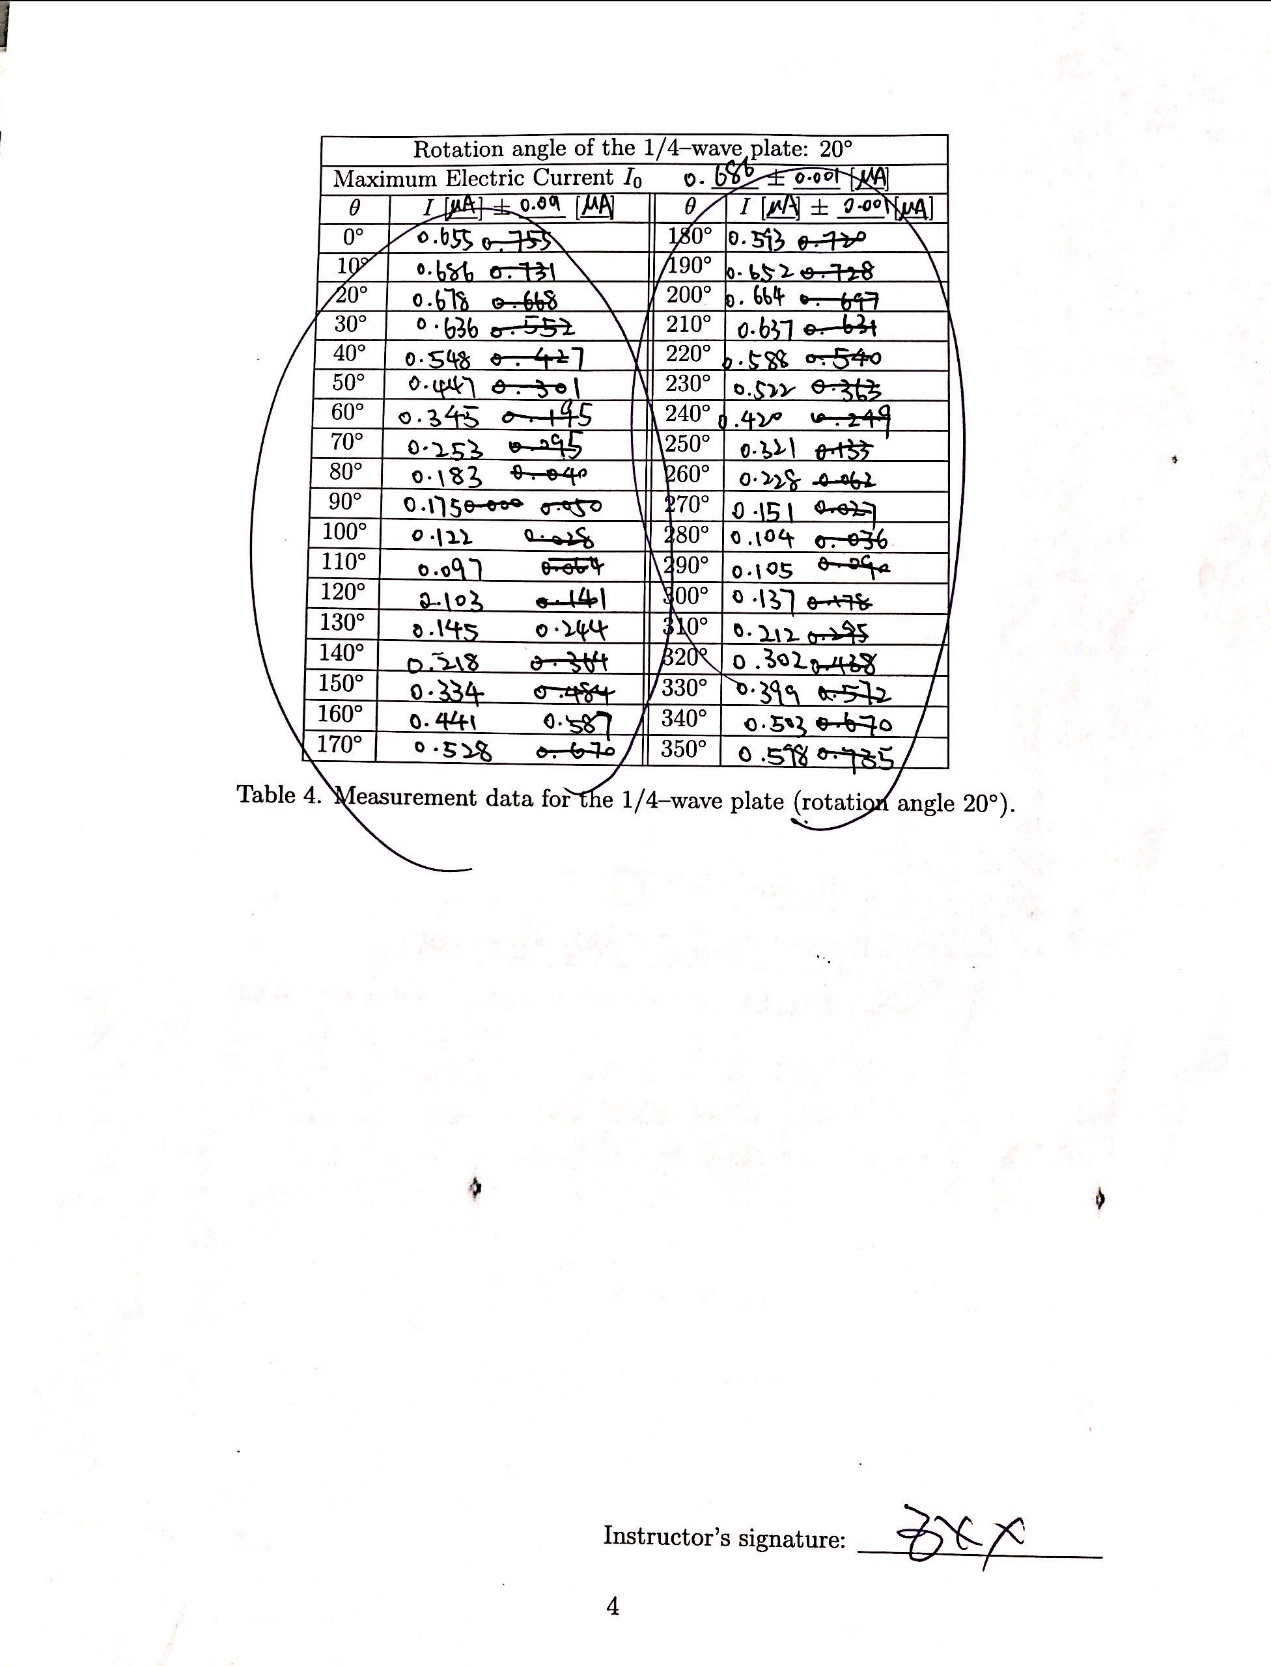 Rotation angle of the 1/4–wave plate: 20°
Maximum Electric Current I₀ 0.686 ± 0.001 [μA]
θ I [μA] ± 0.09 [μA] θ I [μA] ± 0.001 [μA]
0° 0.655 0.755 180° 0.593 0.720
10° 0.686 0.731 190° 0.652 0.728
20° 0.678 0.668 200° 0.664 0.697
30° 0.636 0.552 210° 0.637 0.631
40° 0.548 0.427 220° 0.588 0.540
50° 0.447 0.301 230° 0.522 0.363
60° 0.345 0.195 240° 0.420 0.249
70° 0.253 0.095 250° 0.321 0.133
80° 0.183 0.040 260° 0.228 0.062
90° 0.175 0.000 0.050 270° 0.151 0.027
100° 0.122 0.028 280° 0.104 0.036
110° 0.097 0.064 290° 0.105
120° 0.103 0.141 300° 0.137 0.178
130° 0.145 0.244 310° 0.212 0.295
140° 0.218 0.364 320° 0.302 0.438
150° 0.334 0.484 330° 0.399 0.572
160° 0.441 0.587 340° 0.503 0.670
170° 0.528 0.670 350° 0.598 0.735
Table 4. Measurement data for the 1/4–wave plate (rotation angle 20°).
Instructor's signature:
4